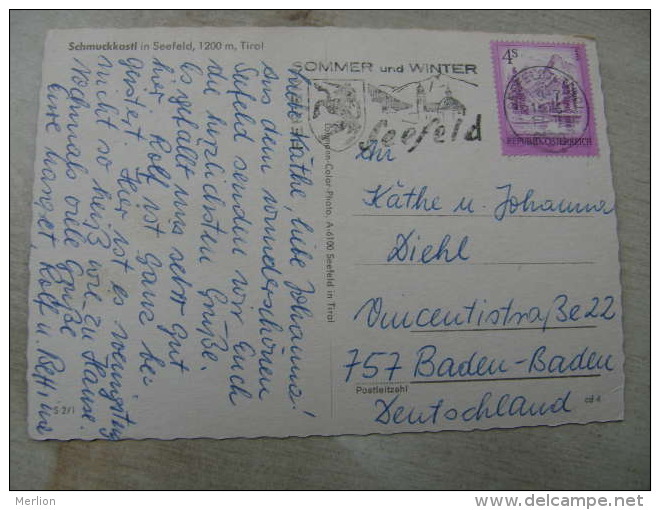 Schmuckkastl in Seefeld, 1200 m, Tirol
Liebe Käthe, liebe Johanna!
aus dem wunderschönen
Seefeld senden wir Euch
die herzlichsten Grüße.
Es gefällt uns sehr gut
hier. Rolf ist ganz be-
geistert. Hier ist es wenigstens
nicht so heiß wie zu Hause.
Nochmals viele Grüße
Eure Margret, Rolf u. Bettina
S 2/1
SOMMER und WINTER
Seefeld
4S
REPUBLIK ÖSTERREICH
-Color-Photo, A-6100 Seefeld in Tirol
An
Käthe u. Johanna
Diehl
Vincentistraße 22
757 Baden-Baden
Postleitzahl
Deutschland
cd 4
Merlion
www.delcampe.net